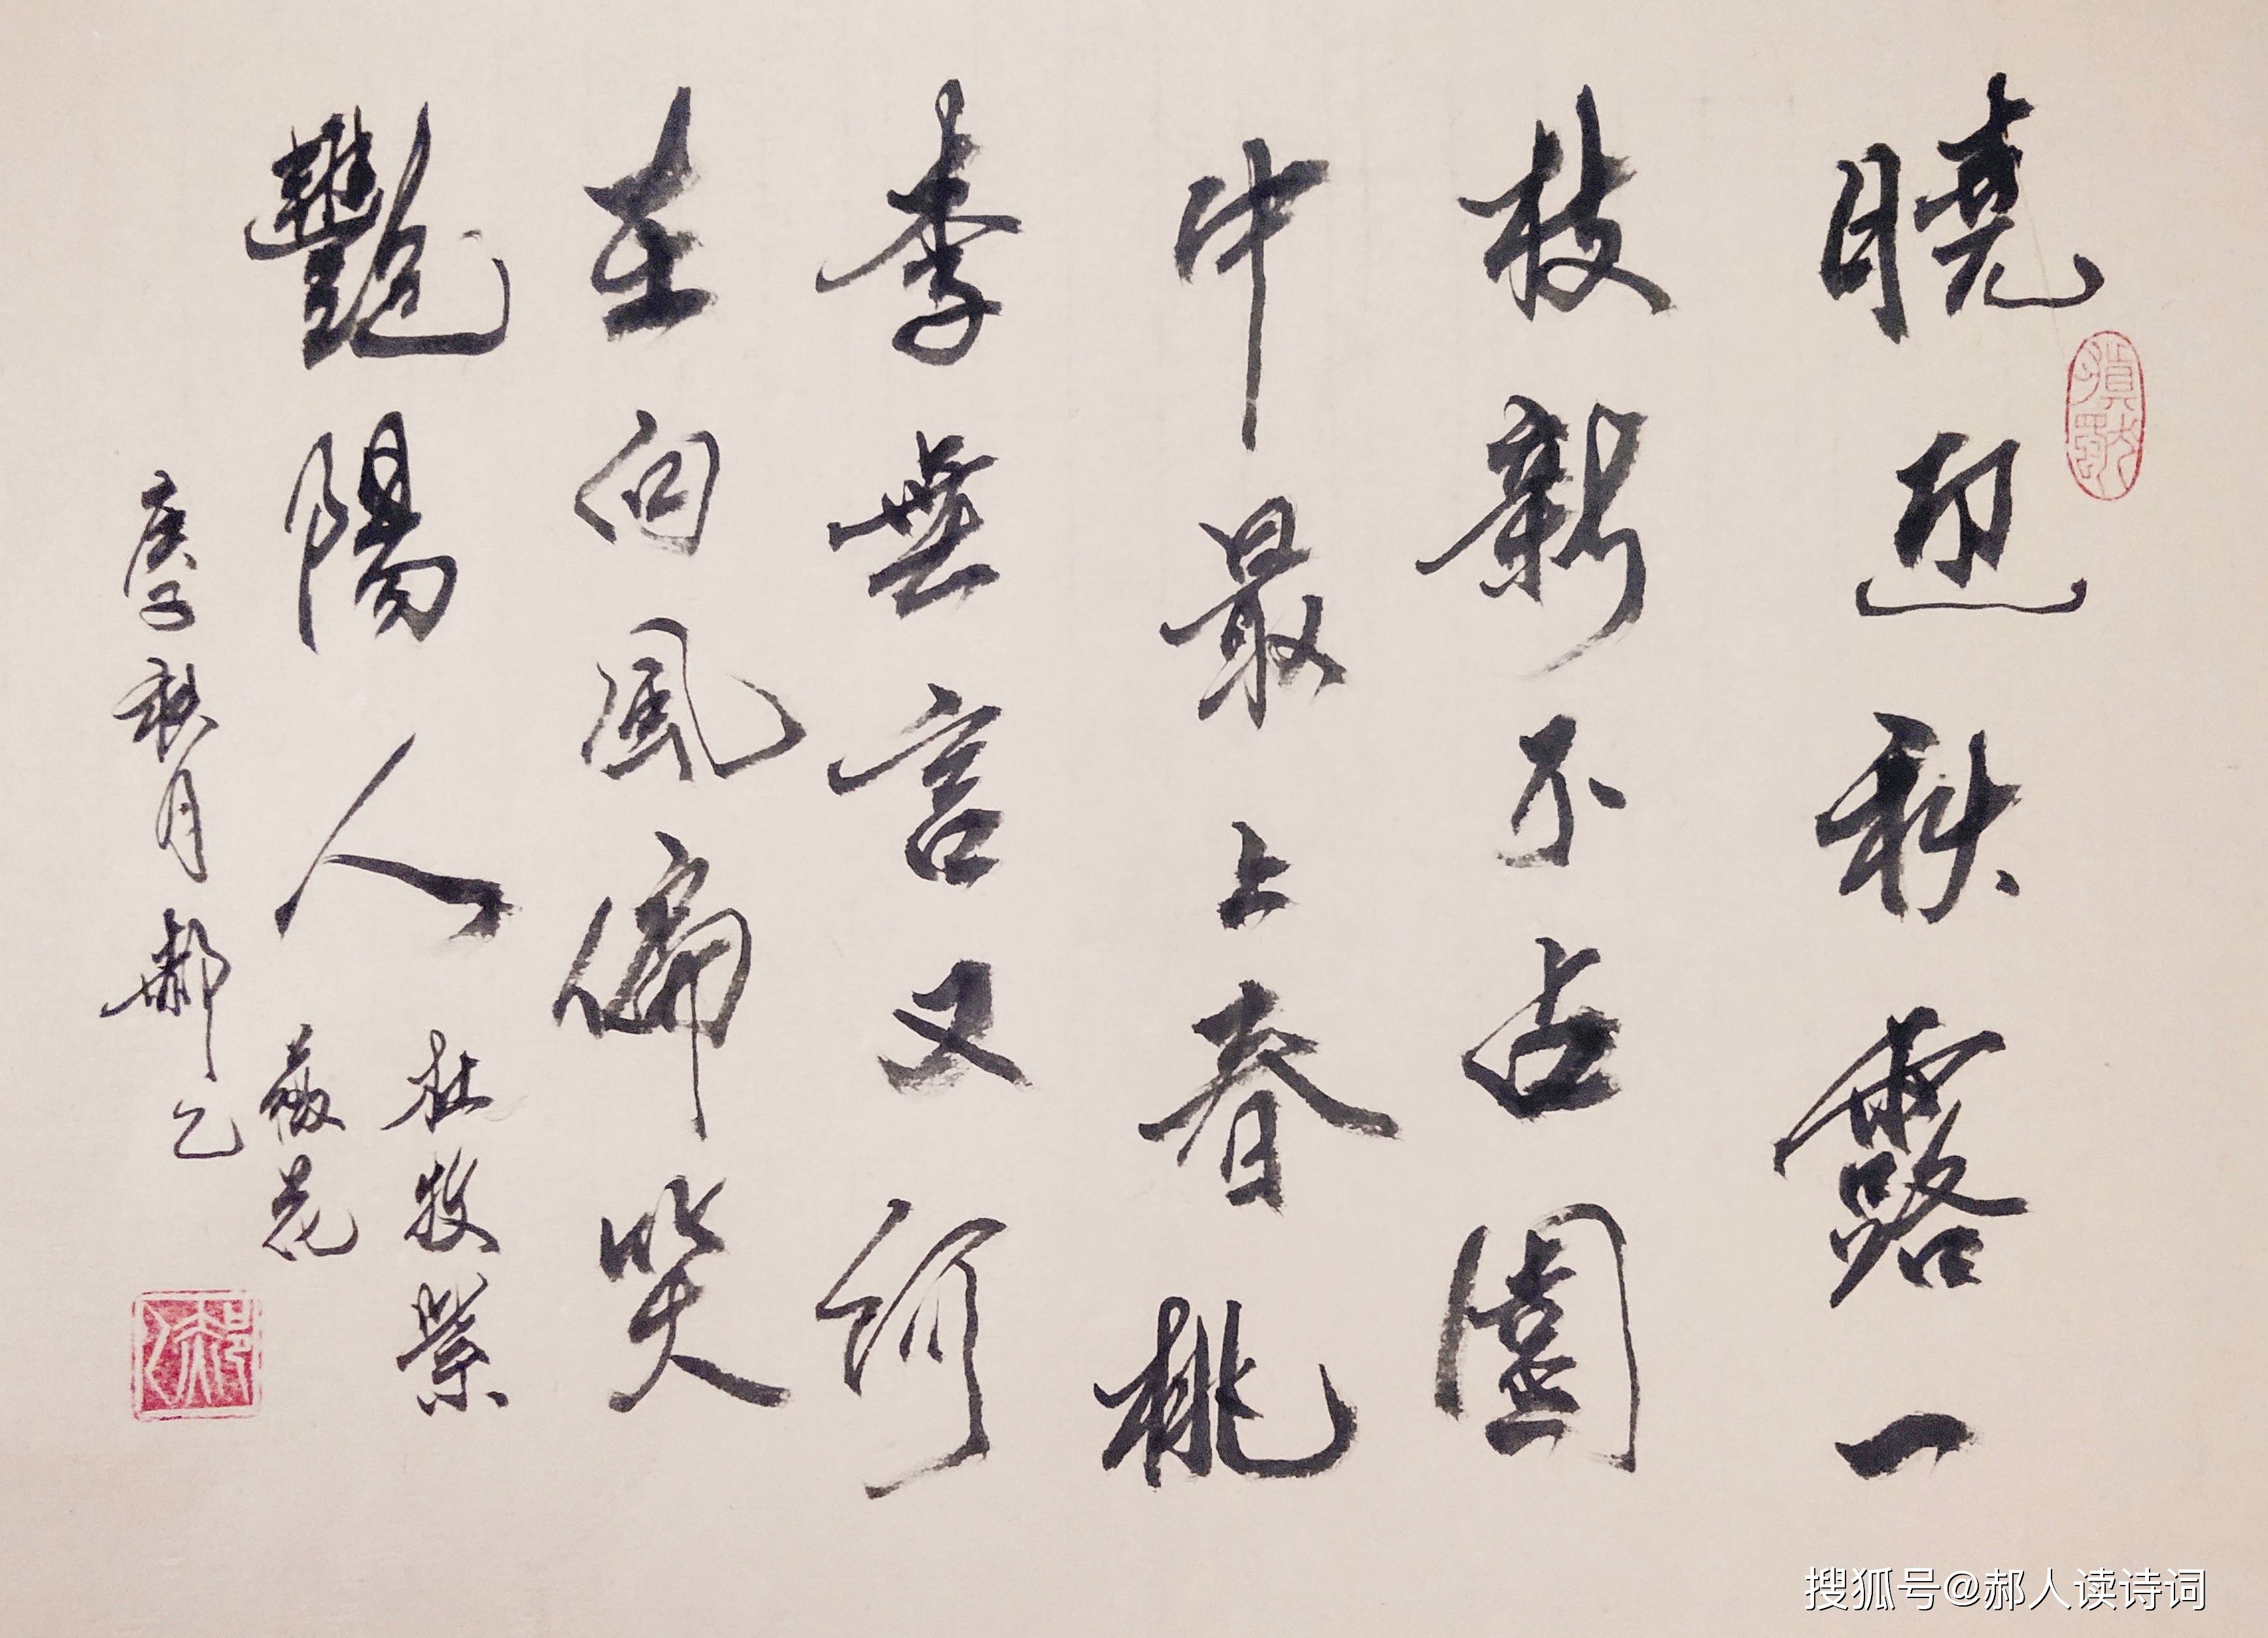 曉迎秋露一
枝新不占園
中最上春桃
李無言又何
在向風偏笑
艷陽人
杜牧紫
薇花
庚子秋月郝乙
搜狐号@郝人读诗词